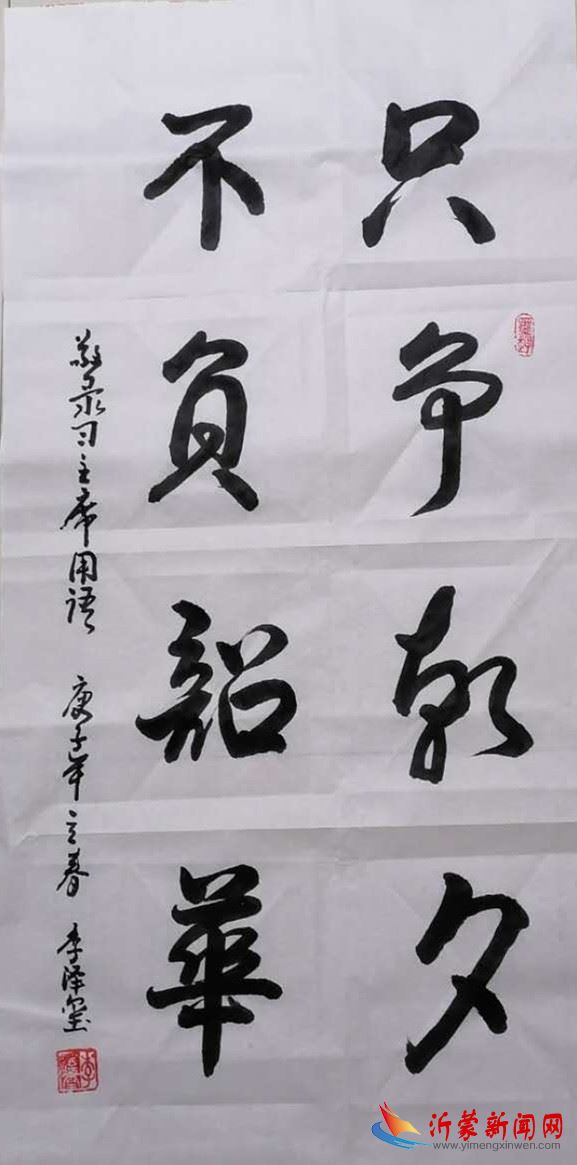 只争朝夕
不负韶華
敬录习主席用语 庚子年立春 李泽玺
沂蒙新闻网
www.yimengxinwen.com